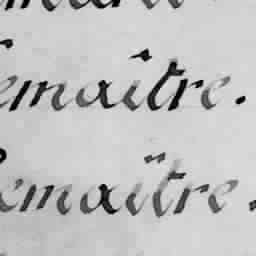 emaître.
emaïtre.